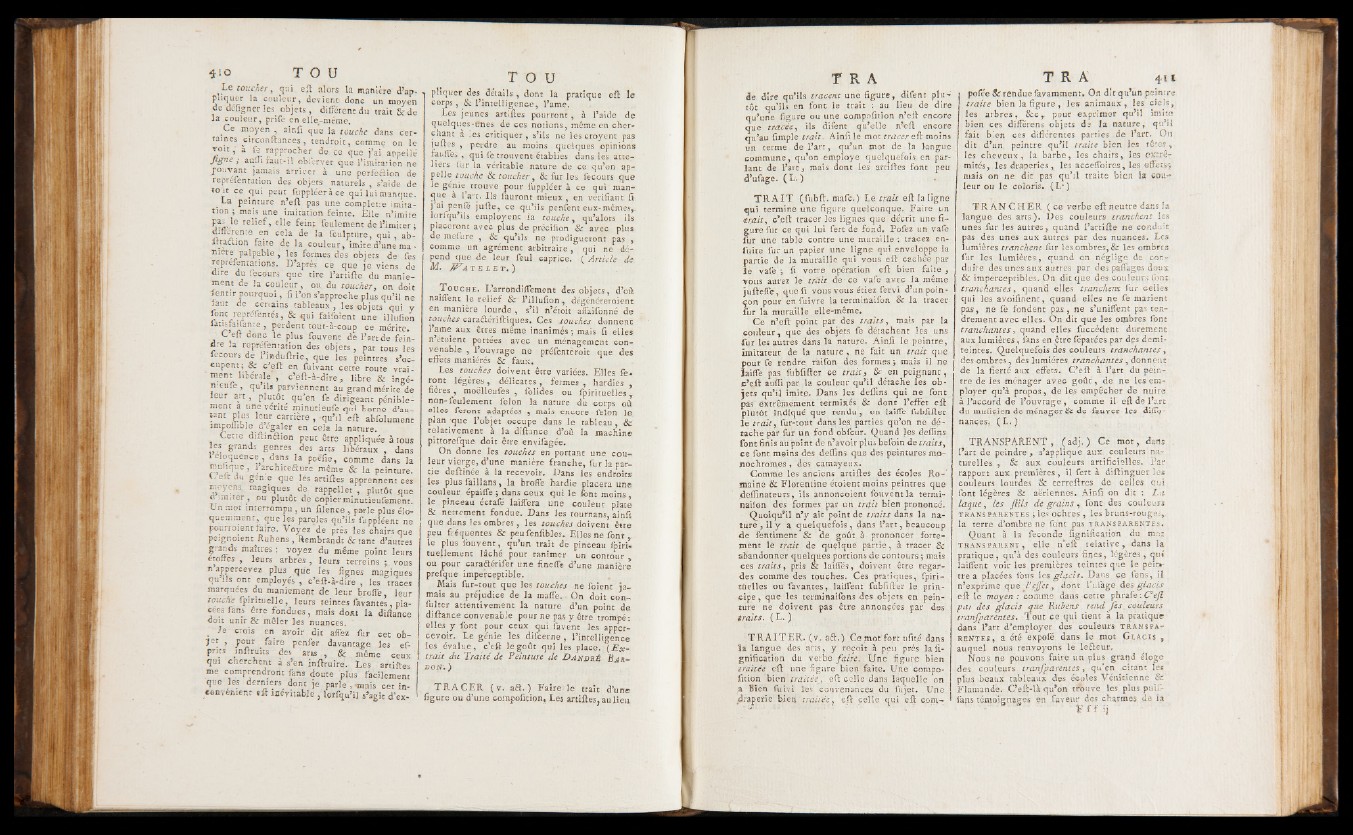 410 TOU
Le toucher, qui est alors la manière d'ap-
pliquer la couleur, devient donc un moyen
de désigner les objets, différent du trait & de
la couleur, prise en elle-même.
Ce moyen, ainsi que la touche dans cer-
taines circonstances, tendroit, comme on le
voit, à se rapprocher de ce que j'ai appellé
signe; aussi faut-il observer que l'imitation ne
pouvant jamais arriver à une perfection de
représentation des objets naturels, s'aide de
tout ce qui peut suppléer à ce qui lui manque.
La peinture n'est pas une complette imita-
tion; mais une imitation feinte. Elle n'imite
pas le relief, elle feint seulement de l'imiter;
différente en cela de la sculpture, qui, ab-
straction faite de la couleur, imite d'une ma-
nière palpable, les formes des objets de ses
représentations. D'après ce que je viens de
dire du secours que tire l'artiste du manie-
ment de la couleur, ou du toucher, on doit
sentir pourquoi, si l'on s'approche plus qu'il ne
faut de certains tableaux, les objets qui y
sont représentés, & qui faisoient une illusion
satisfaisante, perdent tout-à-coup ce mérite.
C'est donc le plus souvent de l'art de fein-
dre la représentation des objets, par tous les
secours de l'industrie, que les peintres s'oc-
cupent; & c'est en suivant cette route vrai-
ment libérale, c'est-à-dire, libre & ingé-
nieuse, qu'ils parviennent au grand mérite de
leur art, plutôt qu'en se dirigeant pénible-
ment à une vérité minutieuse qui borne d'au-
tant plus leur carrière, qu'il est absolument
impossible d'égaler en cela la nature.
Cette distinction peut être appliquée à tous
les grands genres des arts libéraux, dans
l'éloquence, dans la poésie, comme dans la
musique, l'architecture même & la peinture.
C'est du génie que les artistes apprennent ces
moyens magiques de rappeller, plutôt que
d'imiter, ou plutôt de copier minutieusement.
Un mot interrompu, un silence, parle plus élo-
quemment, que les paroles qu'ils suppléent ne
pourroient faire. Voyez de près les chairs que
peignoient Rubens, Rembrandt & tant d'autres
grands maîtres: voyez du même point leurs
étoffes, leurs arbres, leurs terreins; vous
n'appercevez plus que les signes magiques
qu'ils ont employés, c'est-à-dire, les traces
marquées du maniement de leur brosse, leur
touche spirituelle, leurs teintes savantes, pla-
cées sans être fondues, mais dont la distance
doit unir & mêler les nuances.
Je crois en avoir dit assez sur cet ob-
jet, pour faire penser davantage les es-
prits instruits des arts, & même ceux
qui cherchent à s'en instruire. Les artistes
me comprendront sans doute plus facilement
que les derniers dont je parle, mais cet in-
convénient est inévitable, lorsqu'il s'agit d'ex-
TOU
pliquer des détails, dont la pratique est le
corps, & l'intelligence, l'ame.
Les jeunes artistes pourront, à l'aide de
quelques-unes de ces notions, même en cher-
chant à les critiquer, s'ils ne les croyent pas
justes, perdre au moins quelques opinions
fausses, qui se trouvent établies dans les atte-
liers sur la véritable nature de ce qu'on ap-
pelle touche & toucher, & sur les secours que
le génie trouve pour suppléer à ce qui man-
que à l'art. Ils sauront mieux, en vérifiant si
j'ai pensé juste, ce qu'ils pensent eux-mêmes,
lorsqu'ils employent la touche, qu'alors ils
placeront avec plus de précision & avec plus
de mesure, & qu'ils ne prodigueront pas,
comme un agrément arbitraire, qui ne dé-
pend que de leur seul caprice. (Article de
M. WATELET.)
TOUCHE. L'arrondissement des objets, d'où
naissent le relief & l'illusion, dégénéreroient
en manière lourde, s'il n'étoit assaisonné de
touches caractéristiques. Ces touches donnent
l'ame aux êtres même inanimés; mais si elles
n'étoient portées avec un ménagement con-
venable, l'ouvrage ne présenteroit que des
effets maniérés & faux.
Les touches doivent être variées. Elles se-
ront légères, délicates, fermes, hardies,
fières, moëlleuses, solides ou spirituelles,
non-seulement selon la nature du corps où
elles seront adaptées, mais encore selon le
plan que l'objet occupe dans le tableau, &
relativement à la distance d'où la machine
pittoresque doit être envisagée.
On donne les touches en portant une cou-
leur vierge, d'une manière franche, sur la par-
tie destinée à la recevoir. Dans les endroits
les plus saillans, la brosse hardie placera une
couleur épaisse; dans ceux qui le sont moins,
le pinceau écrasé laissera une couleur plate
& nettement fondue. Dans les tournans, ainsi
que dans les ombres, les touches doivent être
peu fréquentes & peu sensibles. Elles ne sont,
le plus souvent, qu'un trait de pinceau spiri-
tuellement lâché pour ranimer un contour,
ou pour caractériser une finesse d'une manière
presque imperceptible.
Mais sur-tout que les touches ne soient ja-
mais au préjudice de la masse. On doit con-
sulter attentivement la nature d'un point de
distance convenable pour ne pas y être trompé:
elles y sont pour ceux qui savent les apper-
cevoir. Le génie les discerne, l'intelligence
les évalue, c'est le goût qui les place. (Ex-
trait du Traité de Peinture de DANDRÉ BAR-
DON.)
TRACER (v. act.) Faire le trait d'une
figure ou d'une composition. Les artistes, au lieu
TRA
de dire qu'ils tracent une figure, disent plu-
tôt qu'ils en font le trait: au lieu de dire
qu'une figure ou une composition n'est encore
que tracée, ils disent qu'elle n'est encore
qu'au simple trait. Ainsi le mot tracer est moins
un terme de l'art, qu'un mot de la langue
commune, qu'on employe quelquefois en par-
lant de l'art, mais dont les artistes font peu
d'usage. (L.)
TRAIT (subst. masc.) Le trait est la ligne
qui termine une figure quelconque. Faire un
trait, c'est tracer les lignes que décrit une fi-
gure sur ce qui lui sert de fond. Posez un vase
sur une table contre une muraille; tracez en-
suite sur un papier une ligne qui enveloppe la
partie de la muraille qui vous est cachée par
le vase; si votre opération est bien faite,
vous aurez le trait de ce vase avec la même
justesse, que si vous vous étiez servi d'un poin-
çon pour en suivre la terminaison & la tracer
sur la muraille elle-même.
Ce n'est point par des traits, mais par la
couleur, que des objets se détachent les uns
sur les autres dans la nature. Ainsi le peintre,
imitateur de la nature, ne fait un trait que
pour se rendre raison des formes; mais il ne
laisse pas subsister ce trait, & en peignant,
c'est aussi par la couleur qu'il détache les ob-
jets qu'il imite. Dans les dessins qui ne sont
pas extrêmement terminés & dont l'effet est
plutôt indiqué que rendu, on laisse subsister
le trait, sur-tout dans les parties qu'on ne dé-
tache par sur un fond obscur. Quand les dessins
sont finis au point de n'avoir plus besoin de traits,
ce sont moins des dessins que des peintures mo-
nochromes, des camayeux.
Comme les anciens artistes des écoles Ro-
maine & Florentine étoient moins peintres que
dessinateurs, ils annonçoient souvent la termi-
naison des formes par un trait bien prononcé.
Quoiqu'il n'y ait point de traits dans la na-
ture, il y a quelquefois, dans l'art, beaucoup
de sentiment & de goût à prononcer forte-
ment le trait de quelque partie, à tracer &
abandonner quelques portions de contours; mais
ces traits, pris & laissés, doivent être regar-
dés comme des touches. Ces pratiques, spiri-
tuelles ou savantes, laissent subsister le prin-
cipe, que les terminaisons des objets en pein-
ture ne doivent pas être annoncées par des
traits. (L.)
TRAITER. (v. act.) Ce mot fort usité dans
la langue des arts, y reçoit à peu près la si-
gnification du verbe faire. Une figure bien
traitée est une figure bien faite. Une compo-
sition bien traitée, est celle dans laquelle on
a bien suivi les convenances du sujet. Une
draperie bien traitée, est celle qui est com-
TRA 411
posée & rendue savamment. On dit qu'un peintre
traite bien la figure, les animaux, les ciels,
les arbres, &c, pour exprimer qu'il imite
bien ces différens objets de la nature, qu'il
fait bien ces différentes parties de l'art. On
dit d'un peintre qu'il traite bien les têtes,
les cheveux, la barbe, les chairs, les extré-
mités, les draperies, les accessoires, les effets;
mais on ne dit pas qu'il traite bien la cou-
leur ou le coloris. (L.)
TRANCHER (ce verbe est neutre dans la
langue des arts). Des couleurs tranchent les
unes sur les autres, quand l'artiste ne conduit
pas des unes aux autres par des nuances. Les
lumières tranchent sur les ombres, & les ombres
sur les lumières, quand on néglige de con-
duire des unes aux autres par des passages doux
& imperceptibles. On dit que des couleurs sont
tranchantes, quand elles tranchent sur celles
qui les avoisinent, quand elles ne se marient
pas, ne se fondent pas, ne s'unissent pas ten-
drement avec elles. On dit que les ombres sont
tranchantes, quand elles succédent durement
aux lumières, sans en être séparées par des demi-
teintes. Quelquefois des couleurs tranchantes,
des ombres, des lumières tranchantes, donnent
de la fierté aux effets. C'est à l'art du pein-
tre de les ménager avec goût, de ne les em-
ployer qu'à propos, de les empêcher de nuire
à l'accord de l'ouvrage, comme il est de l'art
du musicien de ménager & de sauver les disso-
nances. (L.)
TRANSPARENT, (adj.) Ce mot, dans
l'art de peindre, s'applique aux couleurs na-
turelles, & aux couleurs artificielles. Par
rapport aux premières, il sert à distinguer les
couleurs lourdes & terrestres de celles qui
sont légères & aëriennes. Ainsi on dit: La
laque, les stils de grains, sont des couleurs
TRANSPARENTES, les ochres, les bruns-rouges,
la terre d'ombre ne sont pas TRANSPARENTES.
Quant à la seconde signification du mot
TRANSPARENT, elle n'est relative, dans la
pratique, qu'à des couleurs fines, légères, qui
laissent voir les premières teintes que le pein-
tre a placées sous les glacis. Dans ce sens, il
n'exprime que l'effet, dont l'usage des glacis
est le moyen: comme dans cette phrase: C'est
par des glacis que Rubens rend ses couleurs
transparentes. Tout ce qui tient à la pratique
dans l'art d'employer des couleurs TRANSPA-
RENTES, a été exposé dans le mot GLACIS,
auquel nous renvoyons le lecteur.
Nous ne pouvons faire un plus grand éloge
des couleurs transparentes, qu'en citant les
plus beaux tableaux des écoles Vénitienne &
Flamande. C'est-là qu'on trouve les plus puis-
sans témoignages en faveur des charmes de la
Fff ij